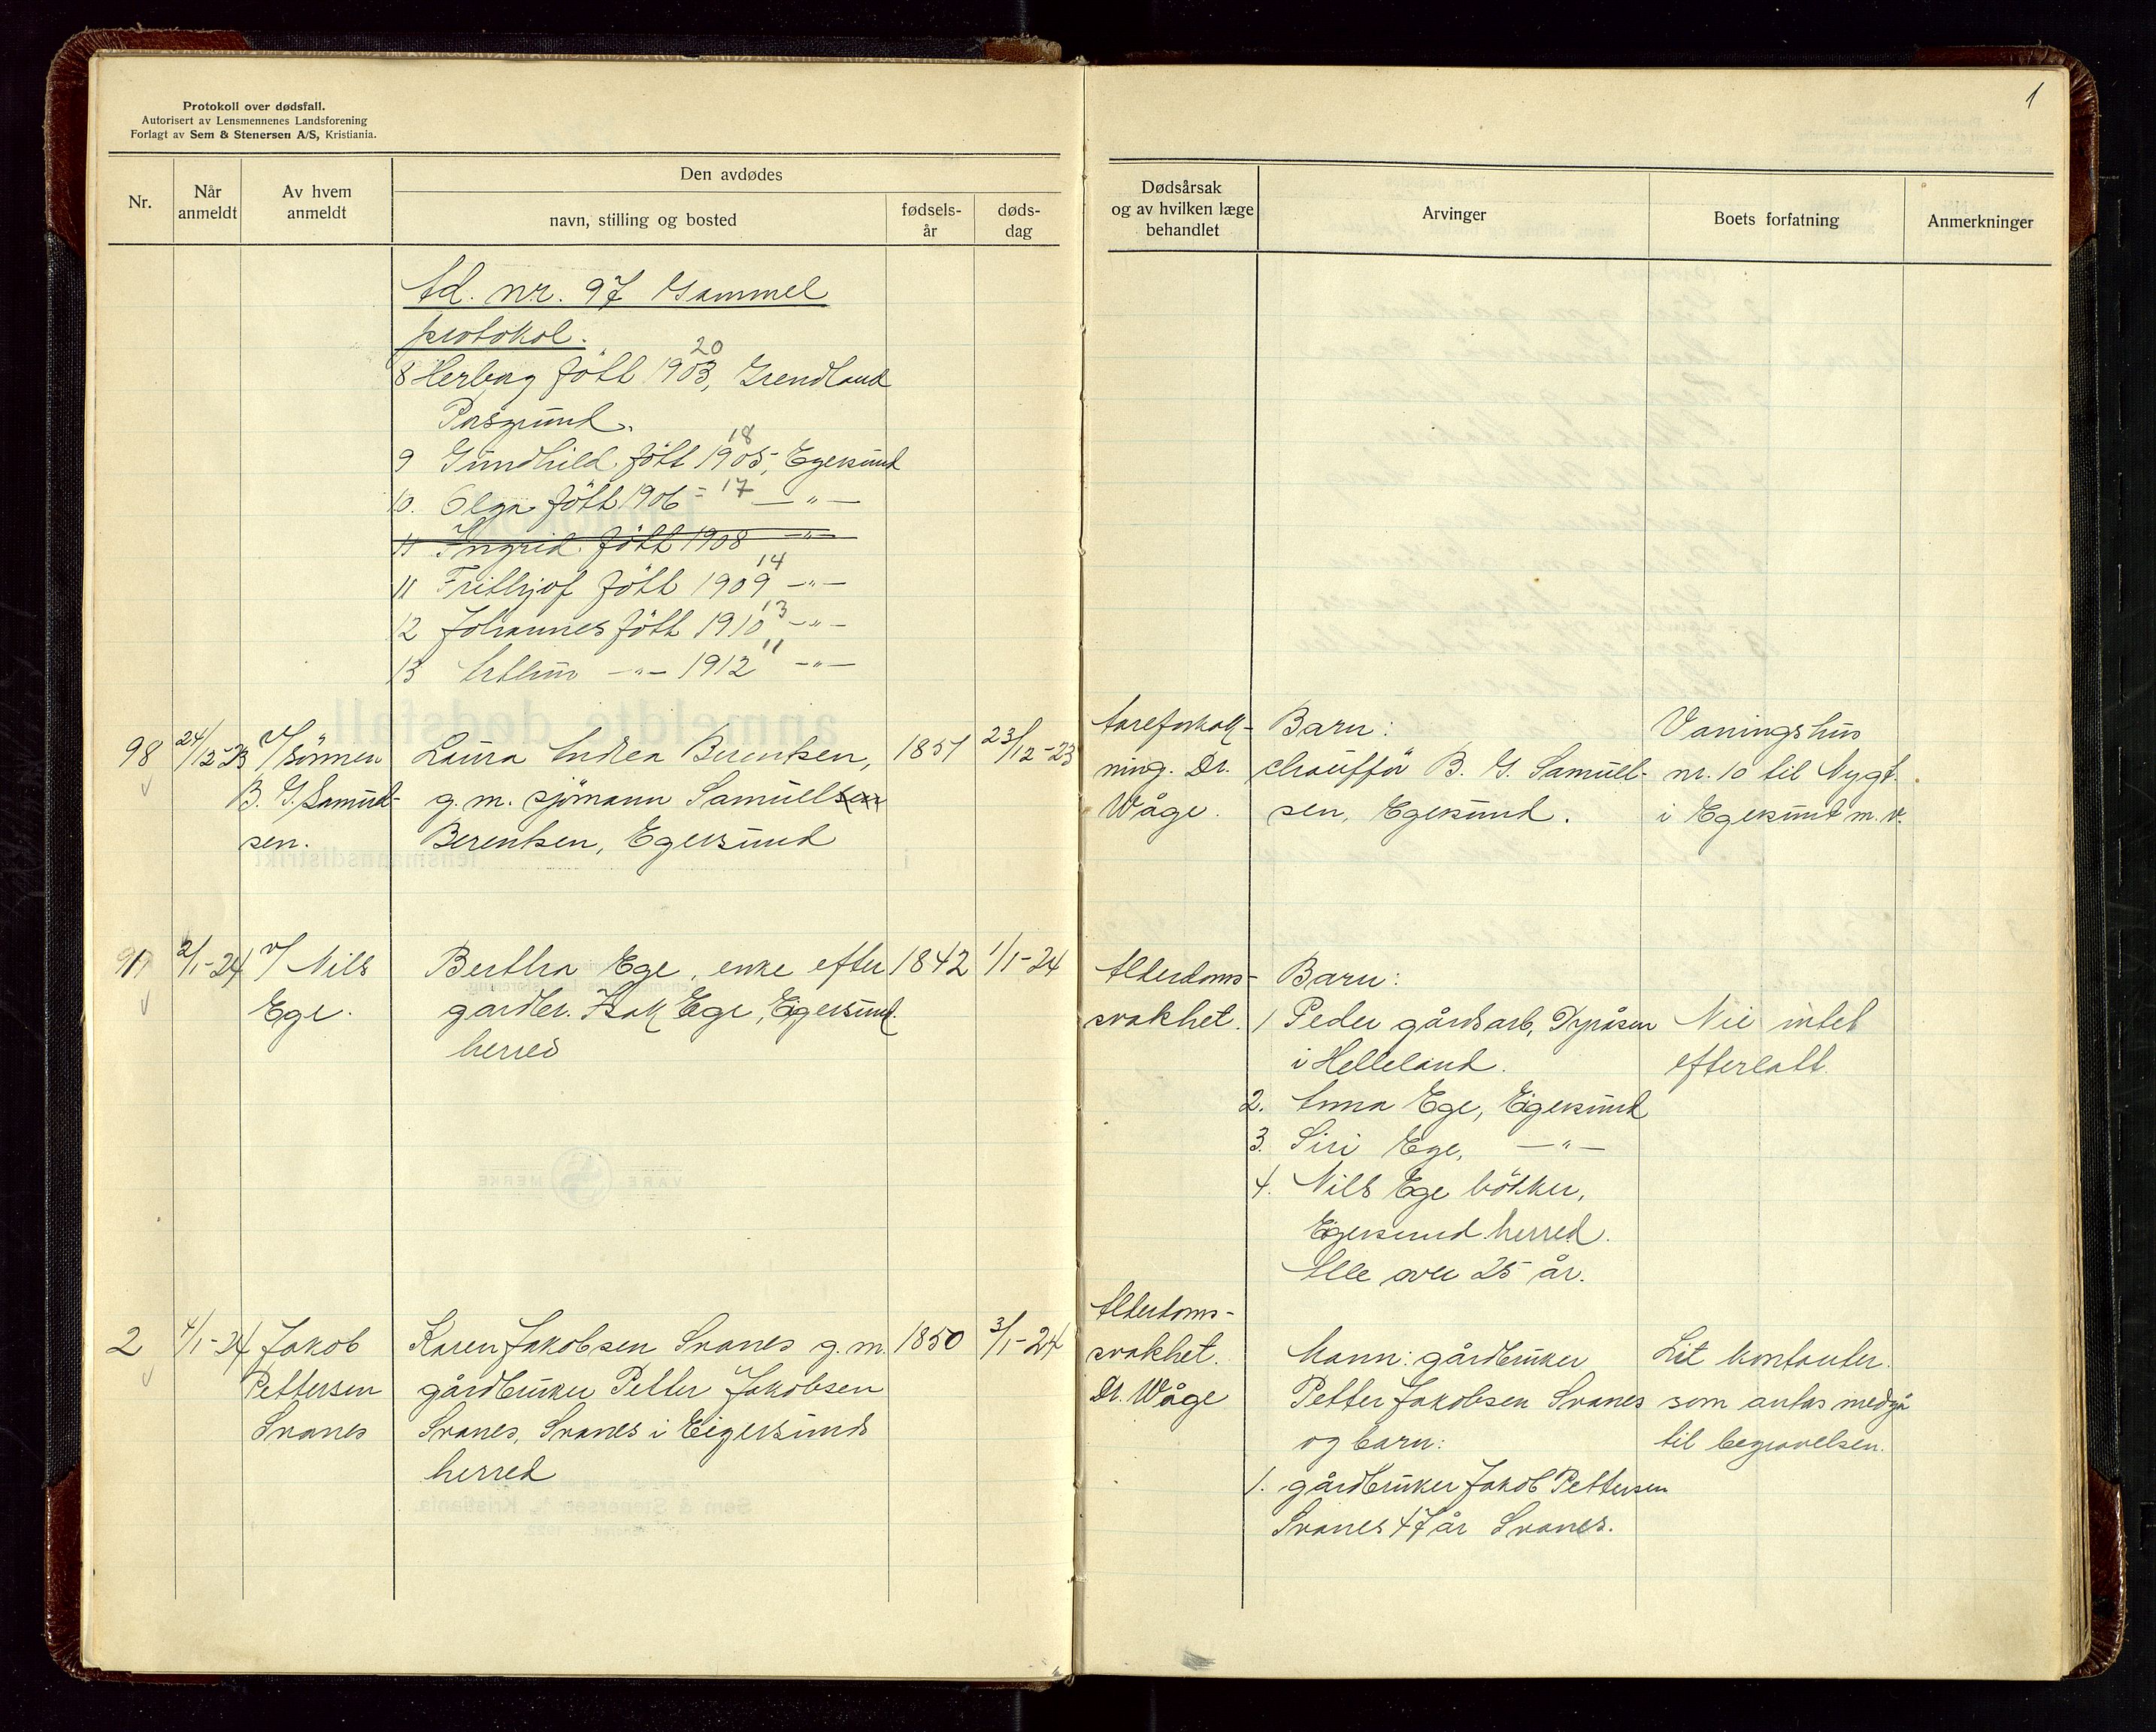 Protokoll over dødsfall.
Autorisert av Lensmennenes Landsforening
Forlagt av Sem & Stenersen A/S, Kristiania.
1
Nr.
Når anmeldt
Av hvem anmeldt
Den avdødes
navn, stilling og bosted
fødsels-år
døds-dag
Dødsårsak og av hvilken læge behandlet
Arvinger
Boets forfatning
Anmerkninger
Ad. nr. 97 Gammel
protokol.
20
8 Herborg født 1903, Grendland
Porsgrund.
18
9 Gundhild født 1905, Egersund
10. Olga født 1906 = 17 —"—
11 Ingrid født 1908 —"—
14
11 Frithjof født 1909 —"—
12 Johannes født 1910 13 —"—
13 Arthur —"— 1912 11 —"—
98
24/12-23
v/ sönnen
B. G. Samuel-
sen.
Laura Andrea Berentsen,
g.m. sjömann Samuelsen
Berentsen, Egersund
1851
23/12-23
Åreforkalk-
ning. Dr.
Wåge.
Barn:
chauffør B. G. Samuel-
sen, Egersund.
Vaningshus
nr. 10 til Nygt.
i Egersund m.v.
2/1-24
v/ Nils
Ege.
Bertha Ege, enke efter
gardbr. Isak Ege, Eigersund
herred
1842
1/1-24
Alderdoms-
svakhet.
Barn:
1 Peder gårdsarb, Dyråsen
i Helleland.
2. Anna Ege, Eigersund
3. Siri Ege, —"—
4. Nils Ege bökker,
Eigersund herred.
Alle over 25 år.
Nie intet
efterlatt.
2
4/1-24
Jakob
Pettersen
Svanes
Karen Jakobsen Svanes g.m.
gårdbruker Petter Jakobsen
Svanes, Svanes i Eigersunds
herred
1850
3/1-24
Alderdoms-
svakhet.
Dr. Wåge
Mann: gårdbruker
Petter Jakobsen Svanes
og barn:
1. gårdbruker Jakob Pettersen
Svanes 47 år Svanes.
Lit kontanter
som antas medgå
til begravelsen.